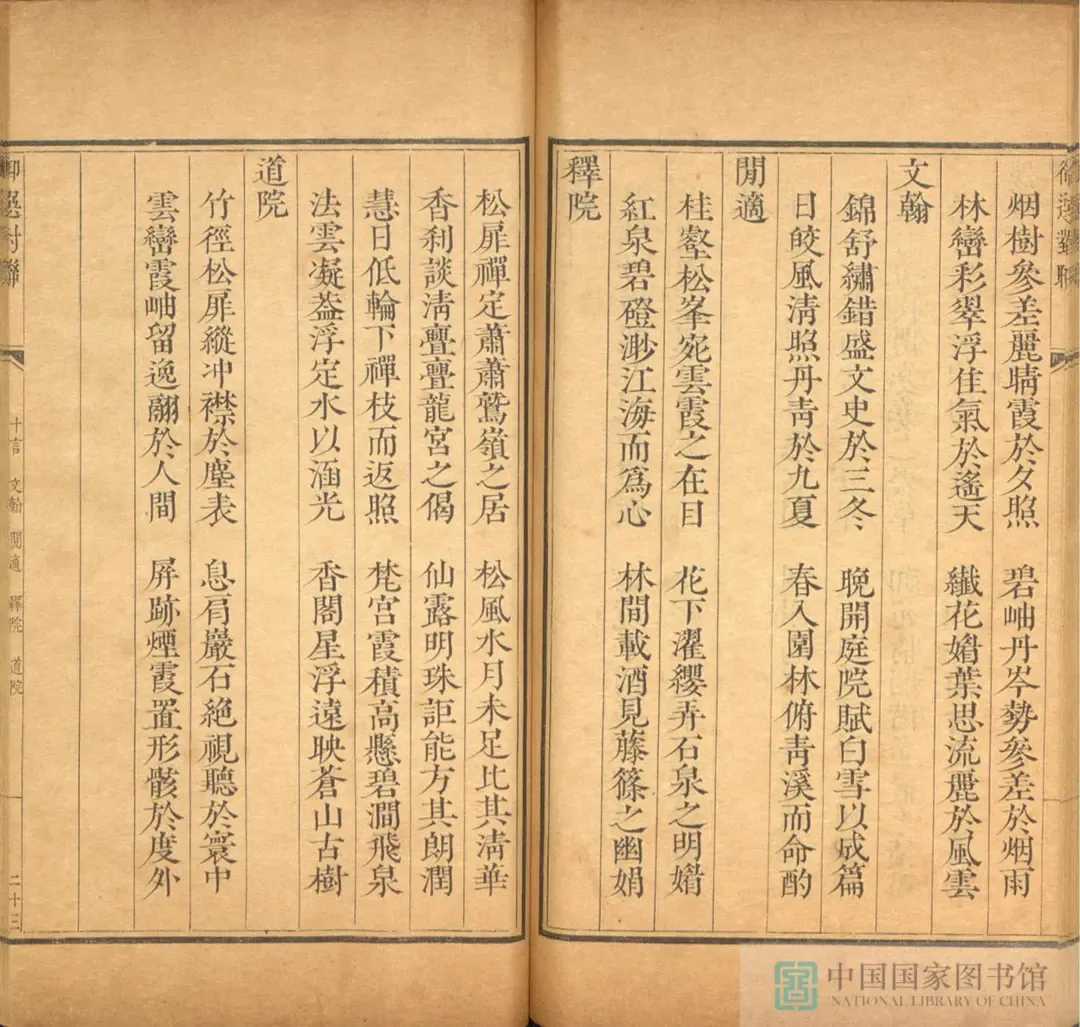 烟樹參差麗晴霞於夕照 碧岫丹岑勢參差於烟雨
林巒彩翠浮佳氣於遙天 纖花媚葉思流麗於風雲
文翰
錦舒繡錯盛文史於三冬 晚開庭院賦白雪以成篇
日皎風清照丹青於九夏 春入園林俯青溪而命酌
閒適
桂壑松峯宛雲霞之在目 花下濯纓弄石泉之明媚
紅泉碧磴渺江海而爲心 林間載酒見藤篠之幽娟
釋院
松扉禪定蕭蕭鷲嶺之居 松風水月未足比其淸華
香刹談淸亹亹龍宮之偈 仙露明珠詎能方其朗潤
慧日低輪下禪枝而返照 梵宮霞積高懸碧澗飛泉
法雲凝葢浮定水以涵光 香閣星浮遠映蒼山古樹
道院
竹徑松扉縱冲襟於塵表 息肩巖石絕視聽於寰中
雲巒霞岫留逸翮於人間 屏跡煙霞置形骸於度外
對聯
十言 文翰 閒適 釋院 道院
二十三
中国国家图书馆
NATIONAL LIBRARY OF CHINA